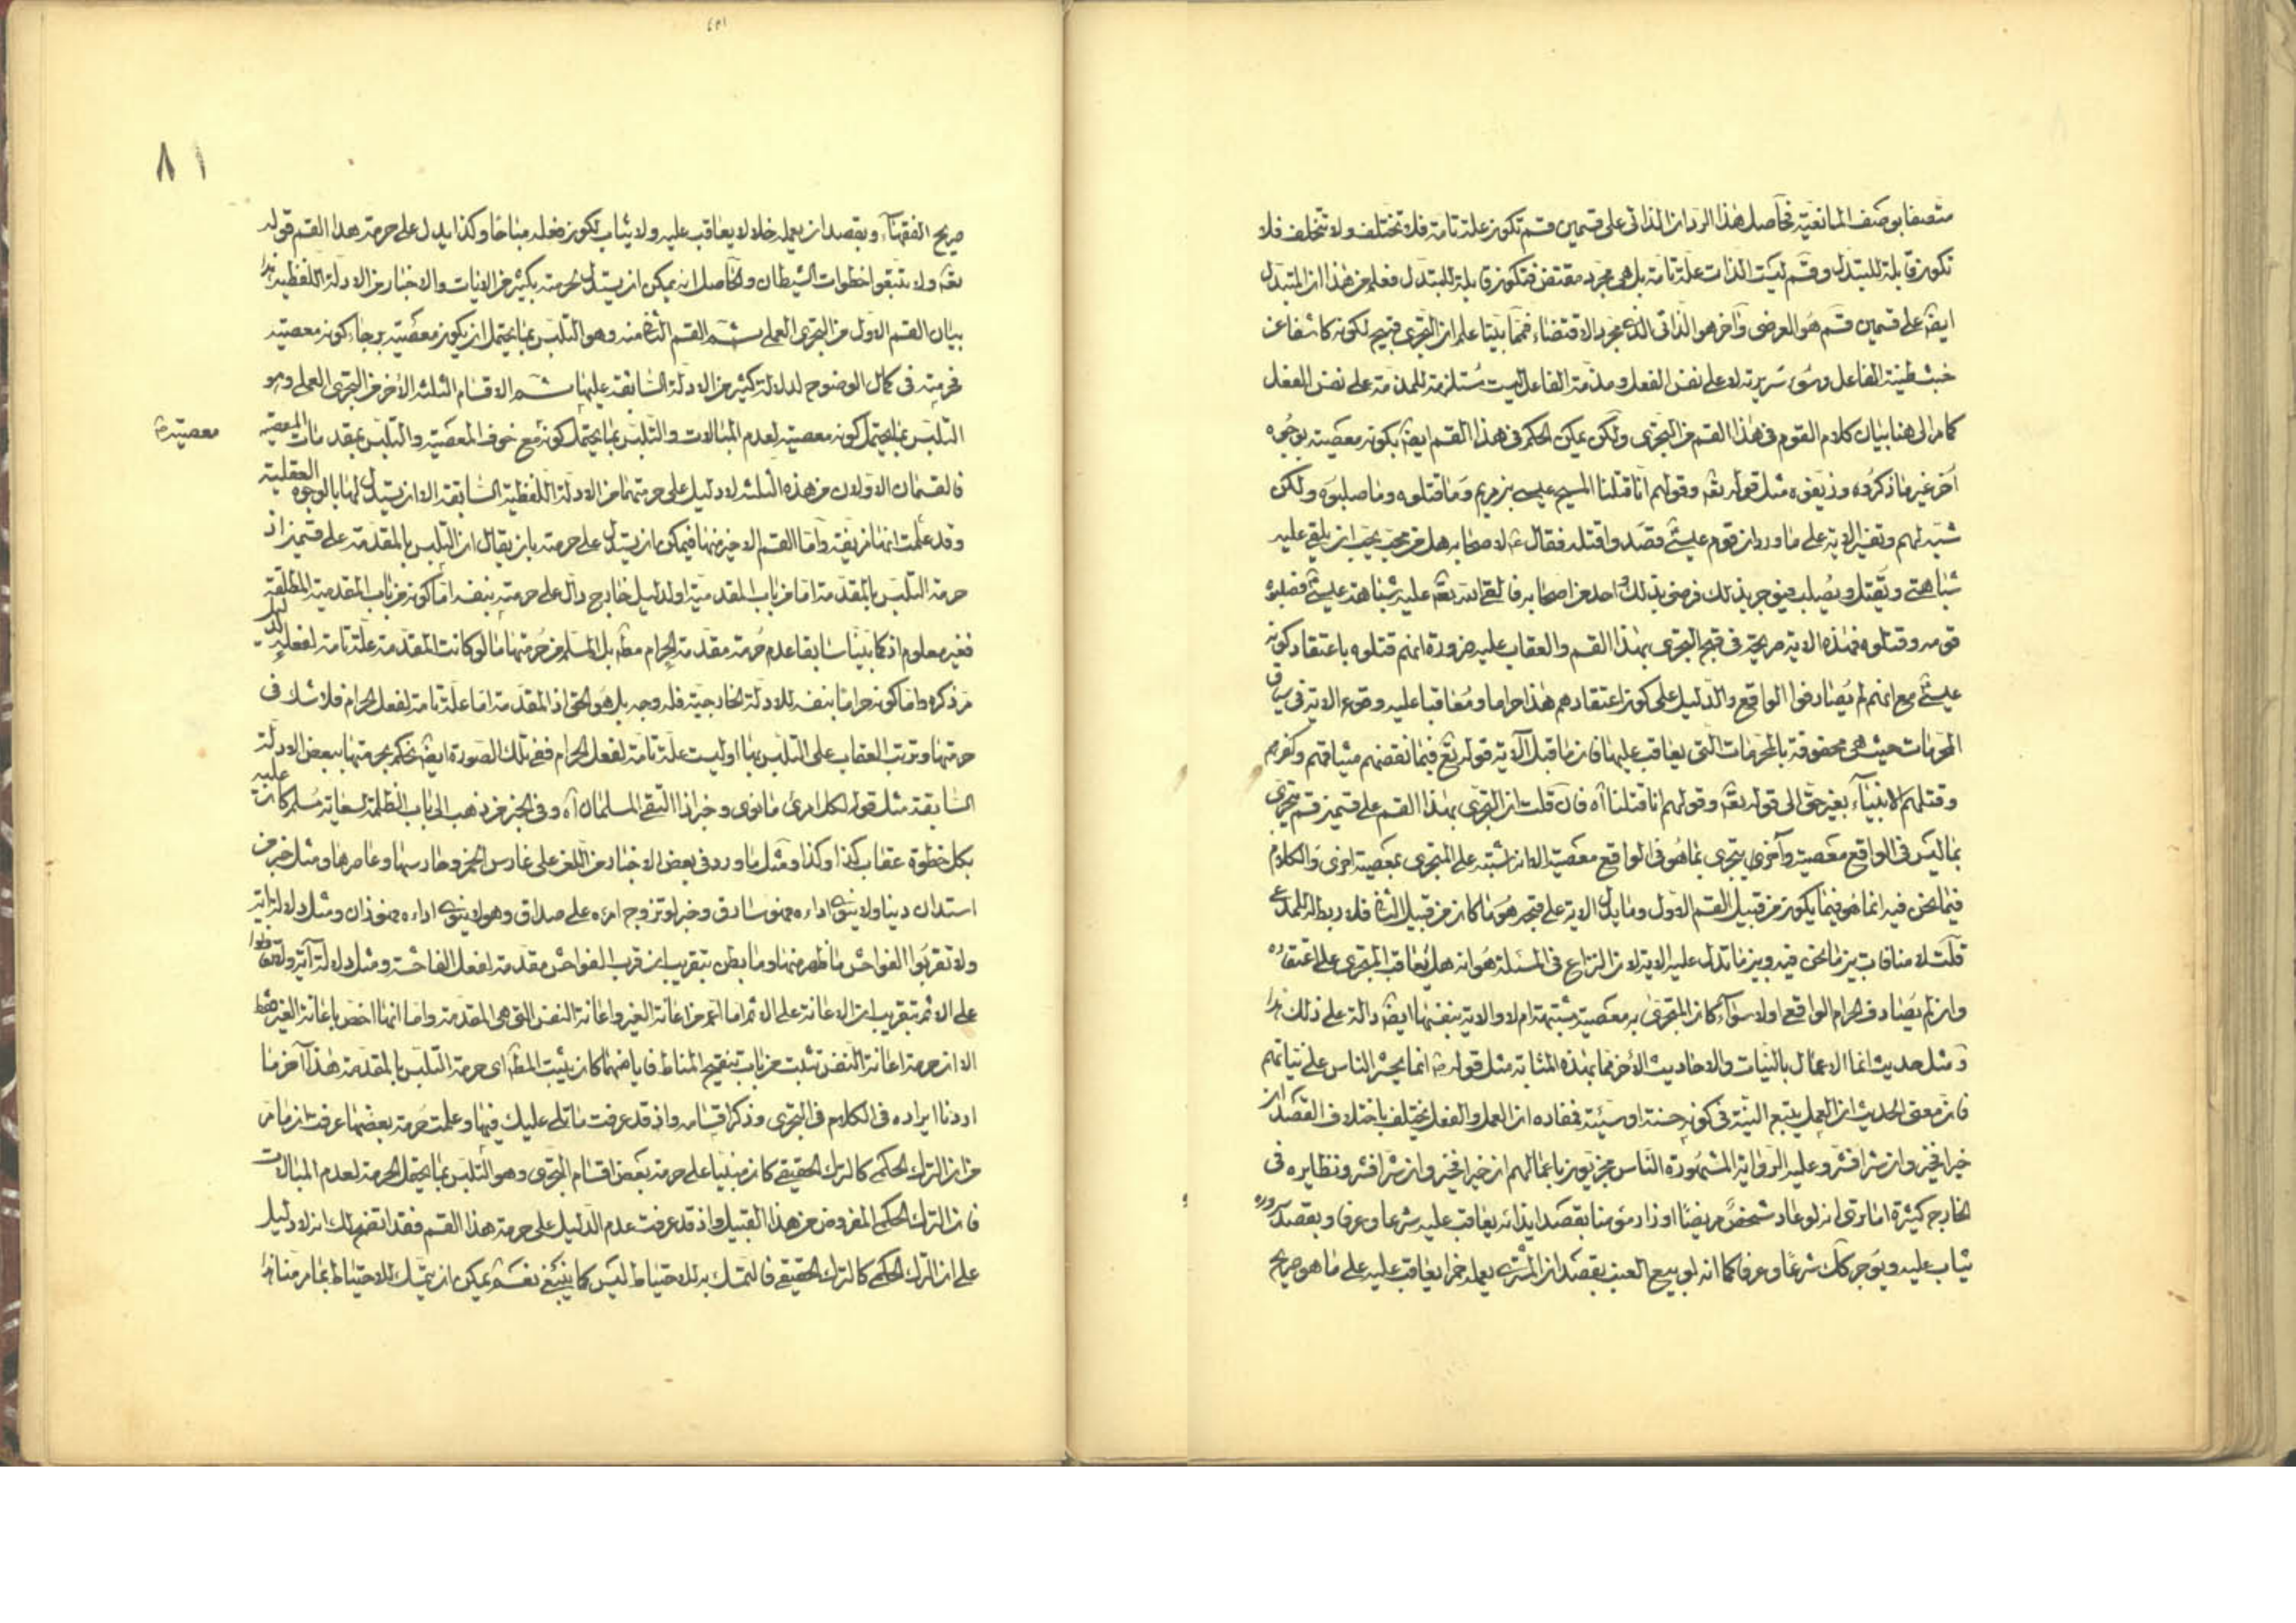 متصفا بوصف المانعية فحاصل هذا الرد ان الذاتى على قسمين قسم تكون علة تامة فلا تختلف ولا تتخلف فلا
تكون قابلة للتبدل وقسم ليست الذات علة تامة بل هى مجرد مقتض فتكون قابلة للتبدل فعلم من هذا ان المتبدل
ايضا على قسمين قسم هو العرضى وآخر هو الذاتى الذى مجرد الاقتضاء فمما بينا علم ان التجرى قبيح لكونه كاشفا عن
خبث طينة الفاعل وسوء سريرته لا على نفس الفعل ومذمة الفاعل ليست مستلزمة للمذمة على نفس الفعل
كما مر الى هنا بيان كلام القوم فى هذا القسم من التجرى ولكن يمكن الحكم فى هذا القسم ايضا بكونه معصية بوجوه
اخر غير ما ذكروه وزيفوه مثل قوله تعه وقولهم انا قتلنا المسيح عيسى بن مريم وما قتلوه وما صلبوه ولكن
شبه لهم وتفسير الاية على ما ورد ان قوم عيسى قصدوا قتله فقال لاصحابه هل من يحب ان يلقى عليه
شباهتى ويقتل ويصلب فيوجر بذلك فرضى بذلك احد من اصحابه فالقى الله تعه عليه شباهة عيسى فصلبوه
قومه وقتلوه فهذه الاية صريحة فى قبح التجرى بهذا القسم والعقاب عليه ضرورة انهم قتلوه باعتقاد كونه
عيسى مع انهم لم يصادفوا الواقع والدليل على كون اعتقادهم هذا حراما ومعاقبا عليه وقوع الاية فى سياق
المحرمات حيث هى محفوفة بالمحرمات التى يعاقب عليها فان ما قبل الآية قوله تع فبما نقضهم ميثاقهم وكفرهم
وقتلهم الانبياء بغير حق الى قوله تعه وقولهم انا قتلنا آه فان قلت ان التجرى بهذا القسم على قسمين قسم يتجرى
بما ليس فى الواقع معصية وآخر يتجرى بما هو فى الواقع معصية الا انه اشتبه على المتجرى بمعصية اخرى والكلام
فيما نحن فيه انما هو فيما يكون من قبيل القسم الاول وما يدل الاية على قبحه هو ما كان من قبيل الثانى فلا ربط له للمدعى
قلت لا منافات بين ما نحن فيه وبين ما تدل عليه الاية لان النزاع فى المسئلة هو انه هل يعاقب المتجرى على اعتقاده
وان لم يصادف الحرام الواقع اولا سواء كان المتجرى به معصية مشتبهة ام لا والاية بنفسها ايضا دالة على ذلك هذا
ومثل حديث انما الاعمال بالنيات والاحاديث الأخر مما بهذه المثابة مثل قوله انما يحشر الناس على نياتهم
فان معنى الحديث ان العمل يتبع النية فى كونه حسنة او سيئة فمفاده ان العمل والفعل يختلف باختلاف القصد ان
خيرا فخير وان شرا فشر وعليه الرواية المشهورة الناس مجزيون باعمالهم ان خيرا فخير وان شرا فشر ونظايره فى
الخارج كثيرة اما ترى انه لو عاد شخص مريضا او زار مؤمنا بقصد ايذائه يعاقب عليه شرعا وعرفا وبقصد سروره
يثاب عليه ويوجر كك شرعا وعرفا كما انه لو بيع العنب بقصد ان المشترى يعمله خمرا يعاقب عليه على ما هو صريح
٨١
صريح الفقهاء وبقصد ان يعمله خلا لا يعاقب عليه ولا يثاب لكون فعله مباحا وكذا يدل على حرمة هذا القسم قوله
تعه ولا تتبعوا خطوات الشيطان والحاصل انه يمكن ان يستدل لحرمته بكثير من الايات والاخبار من الادلة اللفظية هذا
بيان القسم الاول من التجرى العملى ثم القسم الثانى منه وهو التلبس بما يحتمل ان يكون معصية برجاء كونه معصية
فحرمته فى كمال الوضوح لدلالة كثير من الادلة السابقة عليها ثم الاقسام الثلثة الأخر من التجرى العملى وهو
التلبس بما يحتمل كونه معصية لعدم المبالات والتلبس بما يحتمل كونه مع خوف المعصية والتلبس بمقدمات المعصية
معصية
فالقسمان الاولان من هذه الثلثة لا دليل على حرمتهما من الادلة اللفظية السابقة الا ان يستدل لهما بالوجوه العقلية
وقد علمت انها مزيفة واما القسم الاخير منها فيمكن ان يستدل على حرمته بان يقال ان التلبس بالمقدمة على قسمين اذ
حرمة التلبس بالمقدمة اما من باب المقدمية او لدليل خارج دال على حرمته بنفسه اما كونه من باب المقدمية المطلقة
فغير معلوم اذ كما بينا سابقا عدم حرمة مقدمة الحرام مطه بل المسلم من حرمتها ما لو كانت المقدمة علة تامة لفعله
مر ذكره واما كونه حراما بنفسه للادلة الخارجية فله وجه بل هو الحق اذ المقدمة اما علة تامة لفعل الحرام فلا شك فى
حرمتها وترتب العقاب على التلبس بها او ليست علة تامة لفعل الحرام ففى تلك الصورة ايضا نحكم بحرمتها ببعض الادلة
السابقة مثل قوله لكل امرئ ما نوى وخبر اذا التقى المسلمان آه وفى الخبر من ذهب الى باب الظلمة لسعاية مسلم كان عليه
بكل خطوة عقاب كذا وكذا ومثل ما ورد فى بعض الاخبار من اللعن على غارس الخمر وحارسها وعاصرها ومثل خبر من
استدان دينا ولا ينوى اداءه فهو سارق وخبر لو تزوج امرءه على صداق وهو لا ينوى اداءه فهو زان ومثل دلالة اية
ولا تقربوا الفواحش ما ظهر منها وما بطن بتقريب ان قرب الفواحش مقدمة لفعل الفاحشة ومثل دلالة آية ولا تعاونوا
على الاثم بتقريب ان الاعانة على الاثم اما اعم من اعانة الغير واعانة النفس التى هى المقدمة واما انها اخص باعانة الغير فقط
الا ان حرمة اعانة النفس تثبت من باب تنقيح المناط فبايهما كان يثبت المطه اى حرمة التلبس بالمقدمة هذا آخر ما
اردنا ايراده فى الكلام فى التجرى وذكر اقسامه واذ قد عرفت ما تلى عليك فيها وعلمت حرمة بعضها عرفت ان ما مر
من ان الترك الحكمى كالترك الحقيقى كان مبنيا على حرمة بعض اقسام التجرى وهو التلبس بما يحتمل الحرمة لعدم المبالات
فان الترك الحكمى المفروض من هذا القبيل واذ قد عرفت عدم الدليل على حرمة هذا القسم فقد اتضح لك انه لا دليل
على ان الترك الحكمى كالترك الحقيقى فالتمسك به للاحتياط ليس كما ينبغى نعم يمكن ان يتمسك للاحتياط بما مر منا